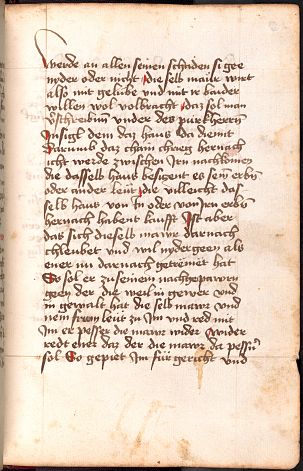 werde an allen seinen schaden si gee
nyder oder nicht die selb maur wirt
also mit gelübe und mit ir baider
willen wol volbracht daz sol man
verschreiben under des purkherrn
Insigl dem daz haus da diemit
darumb daz chain chrieg hernach
icht werde zwischen Irn nachkomen
die dasselb haus besiczent es sein erben
oder ander leüt die villeicht das
selb haus von In oder von Irn erben
hernach habent kaufft Ist aber
das sich dieselb maur darnach
chleubet und wil nydergeen als
ener im darnach getremet hat
So sol er zu seinem nachgepawrn
geen der die weil in gewer und
in gewalt hat die selb mawr und
nem frum leüt zu Im und red mit
Im er pesser die mawr wider wider
redt ener daz der die mawr da pessern
sol So gepiet Im für gericht und